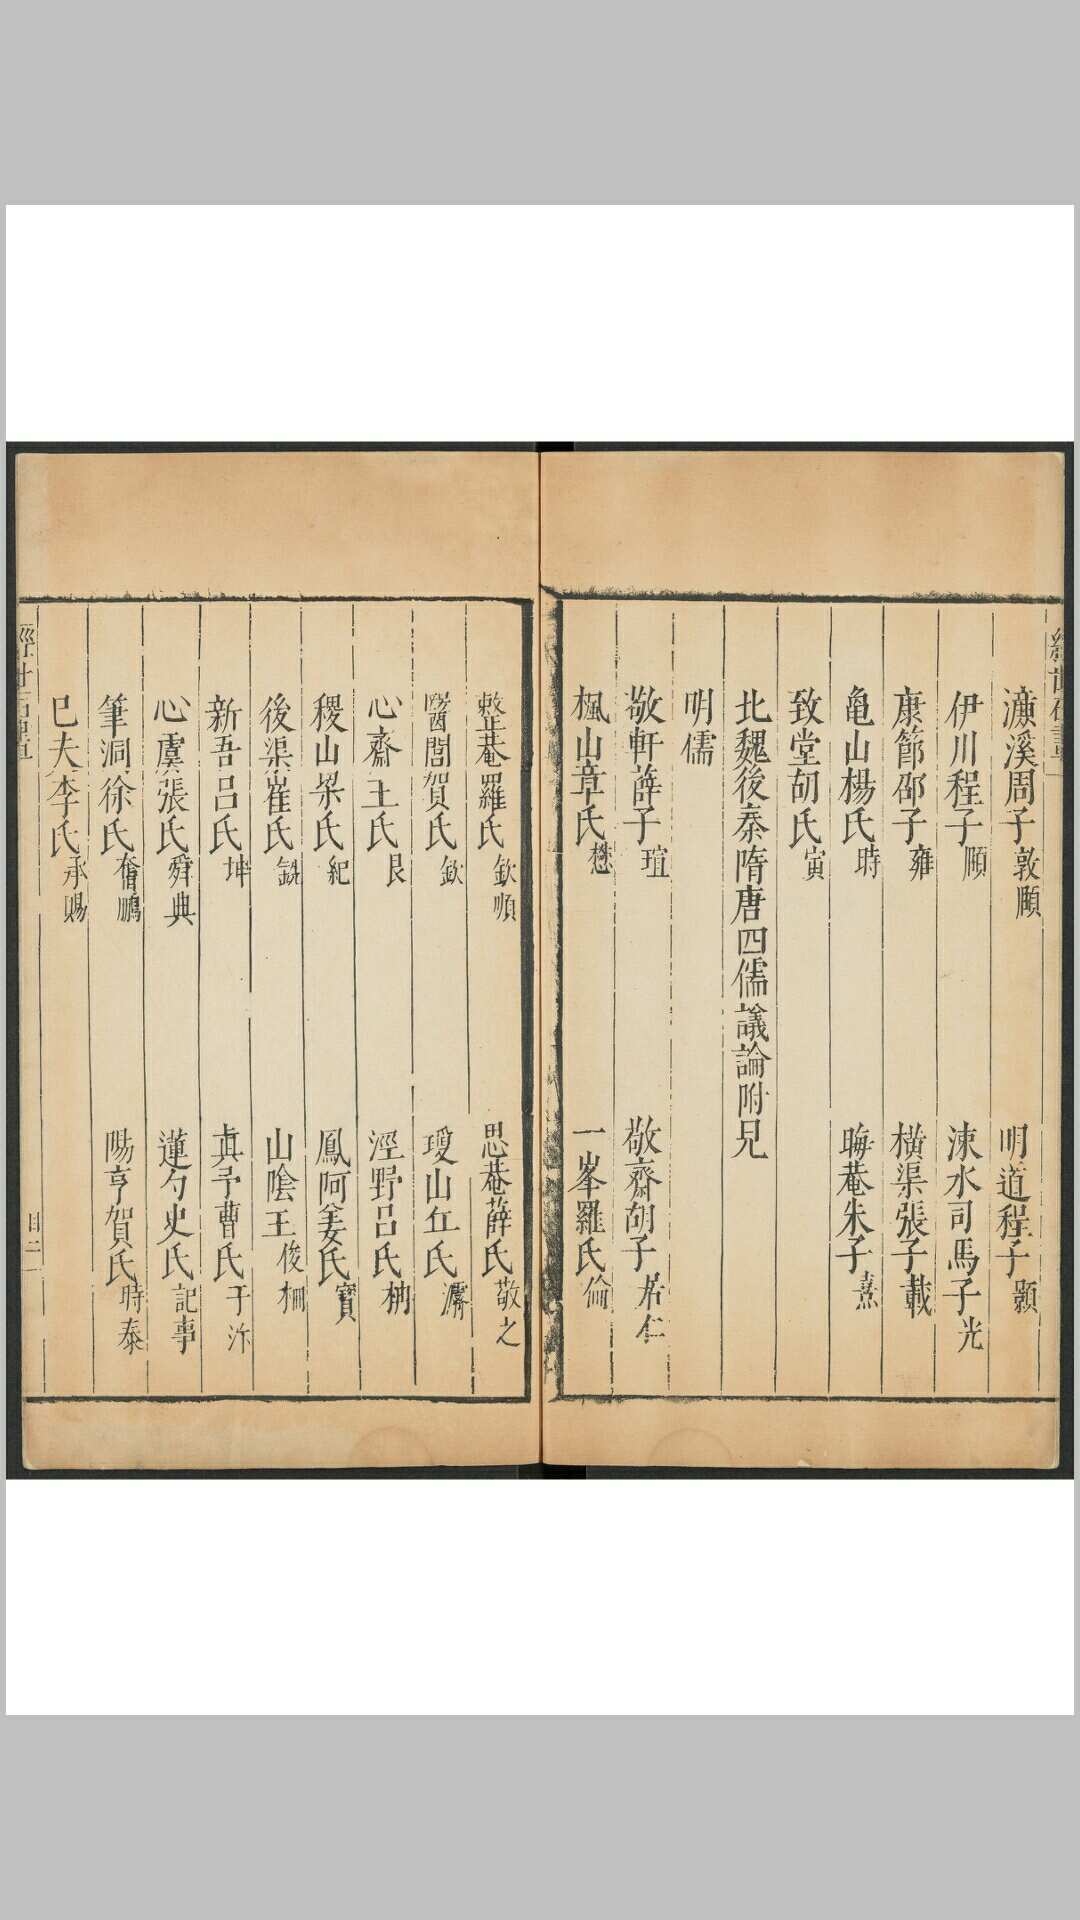 濂溪周子敦頤 明道程子顥
伊川程子頤 涑水司馬子光
康節邵子雍 橫渠張子載
龜山楊氏時 晦菴朱子熹
致堂胡氏寅
北魏後秦隋唐四儒議論附見
明儒
敬軒薛子瑄 敬齋胡子居仁
楓山章氏懋 一峯羅氏倫
整菴羅氏欽順 思菴薛氏敬之
醫閭賀氏欽 瓊山丘氏濬
心齋王氏艮 涇野呂氏柟
稷山梁氏紀 鳳阿姜氏寶
後渠崔氏銑 山陰王俊柵
新吾呂氏坤 真予曹氏于汴
心虞張氏舜典 蓮勺史氏記事
筆洞徐氏奮鵬 陽亨賀氏時泰
巳夫李氏承賜
目二